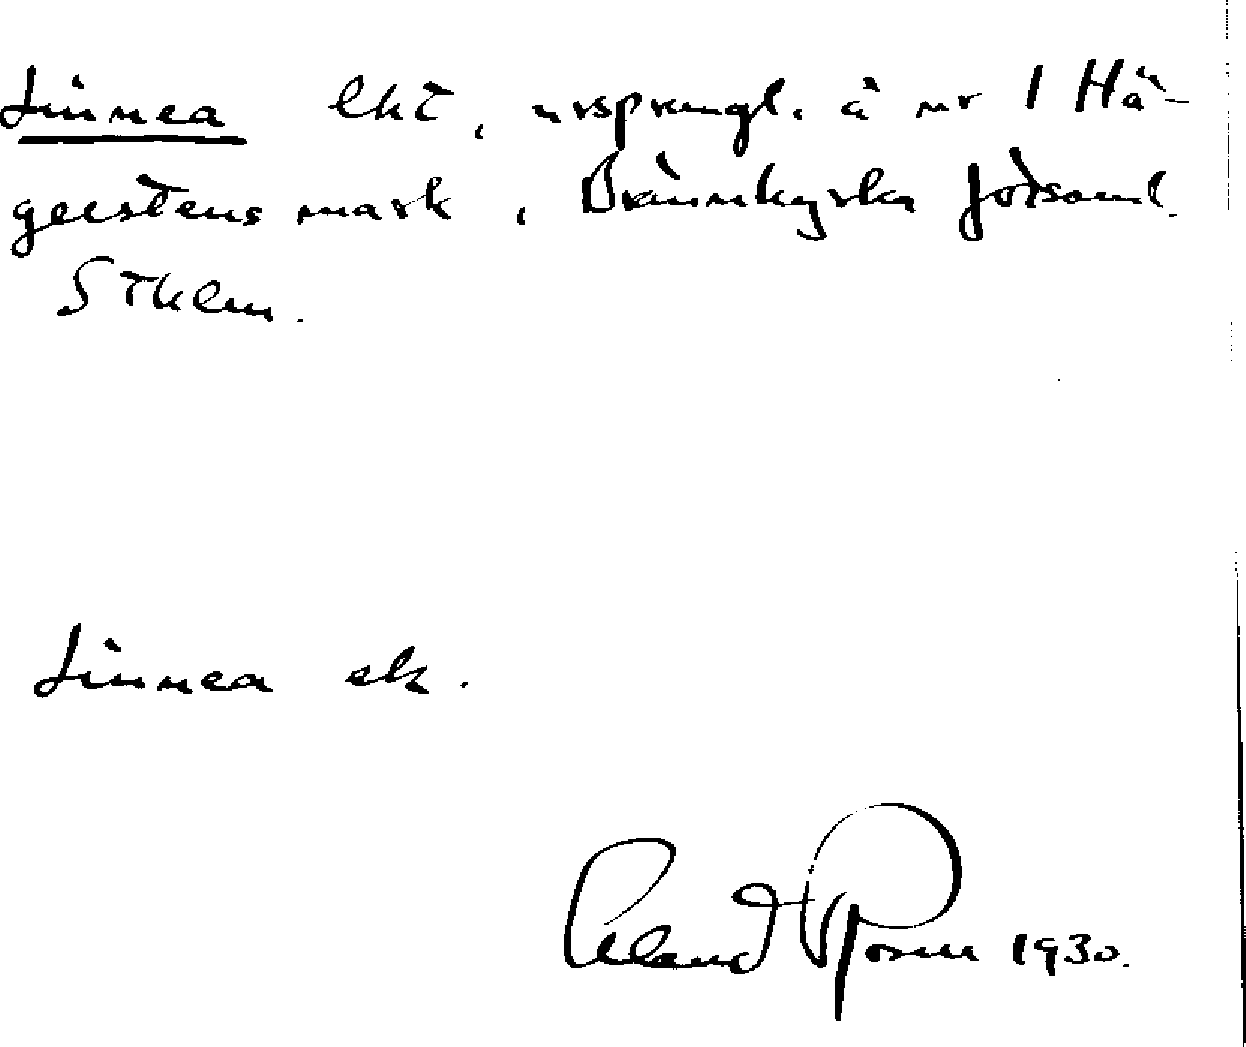 Linnea lht, ursprungl. å nr 1 Hä-
gerstens mark, Brännkyrka förs.
Sthlm.
Linnea ek.
1930.